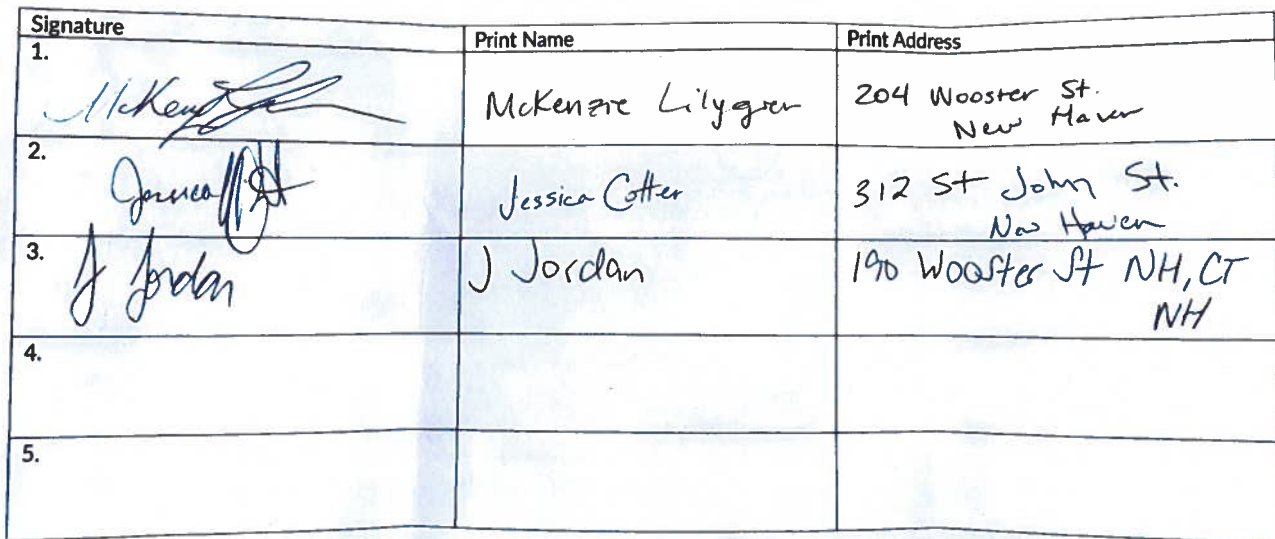 Signature Print Name Print Address
1.
McKenzie Lilygren 204 Wooster St.
New Haven
2.
Jessica Jessica Cotter 312 St John St.
New Haven
3.
J Jordan J Jordan 190 Wooster St NH, CT
NH
4.
5.